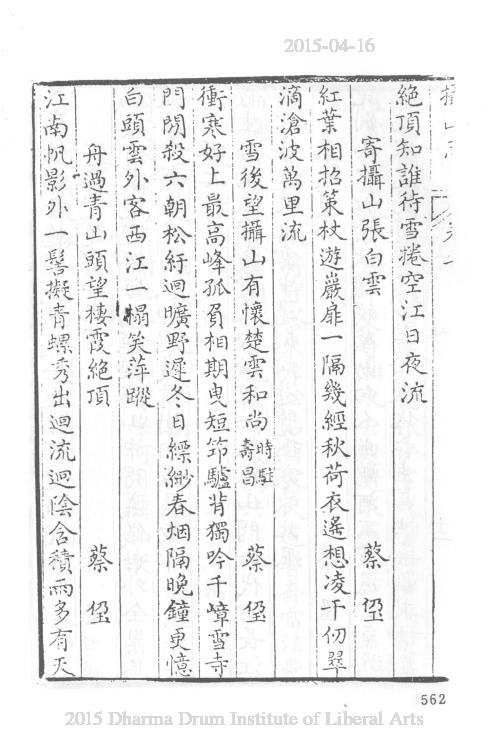 2015-04-16
絶頂知誰待雪捲空江日夜流
寄攝山張白雲 蔡
紅葉相招策杖遊巖扉一隔幾經秋荷衣遙想凌千仞翠
滴滄波萬里流
雪後望攝山有懷楚雲和尚時駐壽昌 蔡
衝寒好上最高峰孤負相期曳短笻驢背獨吟千嶂雪寺
門閒殺六朝松紆迴曠野遲冬日縹緲春烟隔晚鐘更憶
白頭雲外客西江一榻笑萍蹤
舟過青山頭望棲霞絶頂 蔡
江南帆影外一髻擬青螺秀出迴流迴陰含積雨多有天
562
2015 Dharma Drum Institute of Liberal Arts